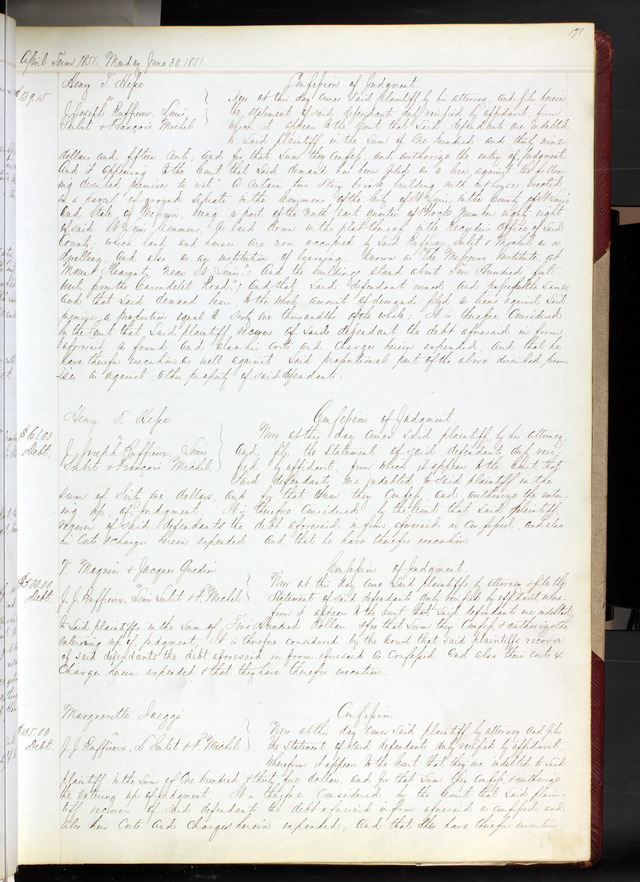 171
April Term 1851. Monday June 30. 1851.
Henry T. Hepe Confession of Judgment.
139.15 vs Now at this day comes said plaintiff by his attorney, and files herein
J. Joseph Ruffieux, Louis the statement of said defendants duly verified by affidavit, from
Sublet & François Michel which it appears to the Court that said defendants are indebted
to said plaintiff in the sum of One hundred and thirty nine
dollars and fifteen cents; and for that sum they confess, and authorize the entry of judgment.
And it appearing to the Court that said demand has been filed as a lien against the follow-
ing described premises to wit "A certain two story brick building with
in a parcel of ground situate in the Commons of the City of St Louis, in the County of St Louis
and State of Missouri, being a part of the North East quarter of Block Number eighty eight
of said St Louis Commons, as laid down in the plat thereof in the Recorders Office of said
County, which land and houses are now occupied by said Ruffieux, Sublet & Michel as a
dwelling and also as an institution of learning, known as the Missouri Institute, at
Mount near St Louis; And the buildings stand about Two Hundred feet
West from the Carondelet Road"; and that said defendants owned and possessed the same;
and that said demand bears to the whole amount of demands filed as liens against said
premises, a proportion equal to Sixty one thousandths of the whole; It is therefore Considered
by the Court that said plaintiff, recover of said defendant the debt aforesaid in form
aforesaid as found and also his costs and charges herein expended, and that he
have therefor execution as well against said proportional part of the above described prem-
ises as against other property of said defendants.
Henry T. Hepe Confession of Judgment.
$61.00 vs Now at this day comes said plaintiff by his attorney
Debt. J. Joseph Ruffieux, Louis and files the statement of said defendants, duly veri-
Sublet & François Michel fied by affidavit, from which it appears to the Court that
said defendants are indebted to said plaintiff in the
sum of Sixty one dollars, and for that sum they confess, and authorize the enter-
ing up of judgment, It is therefore Considered by the Court that said plaintiff
recover of said defendants the debt aforesaid in form aforesaid as confessed, and also
his costs & charges herein expended and that he have therefor execution
V. Magnin & Jacques Guedin Confession of Judgment.
$500.00 vs Now at this day come said plaintiffs by attorney & file the
Debt. J. J. Ruffieux, Louis Sublet & F. Michel Statement of said defendants duly verified by affidavit where-
from it appears to the Court that said defendants are indebted
to said plaintiffs in the sum of Five Hundred dollars & for that sum they confess & authorize the
entering up of judgment. It is therefore considered by the Court that said plaintiffs recover
of said defendants the debt aforesaid in form aforesaid as Confessed, and also their costs &
charges herein expended & that they have therefor execution.
Marguerite Jaeggi Confession
$135.00 vs Now at this day comes said plaintiff by attorney and files
Debt. J. J. Ruffieux, L. Sublet & F. Michel the Statement of said defendants duly verified by affidavit.
wherefrom it appears to the Court that they are indebted to said
plaintiff in the sum of One hundred & thirty five dollars and for that sum they confess & authorize
the entering up of judgment. It is therefore considered by the Court that said plain-
tiff recover of said defendants the debt aforesaid in form aforesaid as confessed and
also her costs and charges herein expended, and that she have therefor execution.